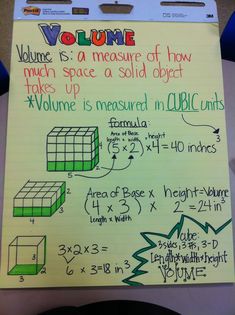 Post-it
VOLUME
Volume is: a measure of how
much space a solid object
takes up
*Volume is measured in CUBIC units
formula:
Area of Base
length x width x height
(5 x 2) x 4 = 40 inches
5
2
4
Area of Base x height = Volume
(4 x 3) x 2 = 24 in³
Length x Width
2
3
4
3 x 2 x 3 =
6 x 3 = 18 in³
3
2
3
cube:
3 sides, 3 #s, 3-D
Length x width x height
VOLUME